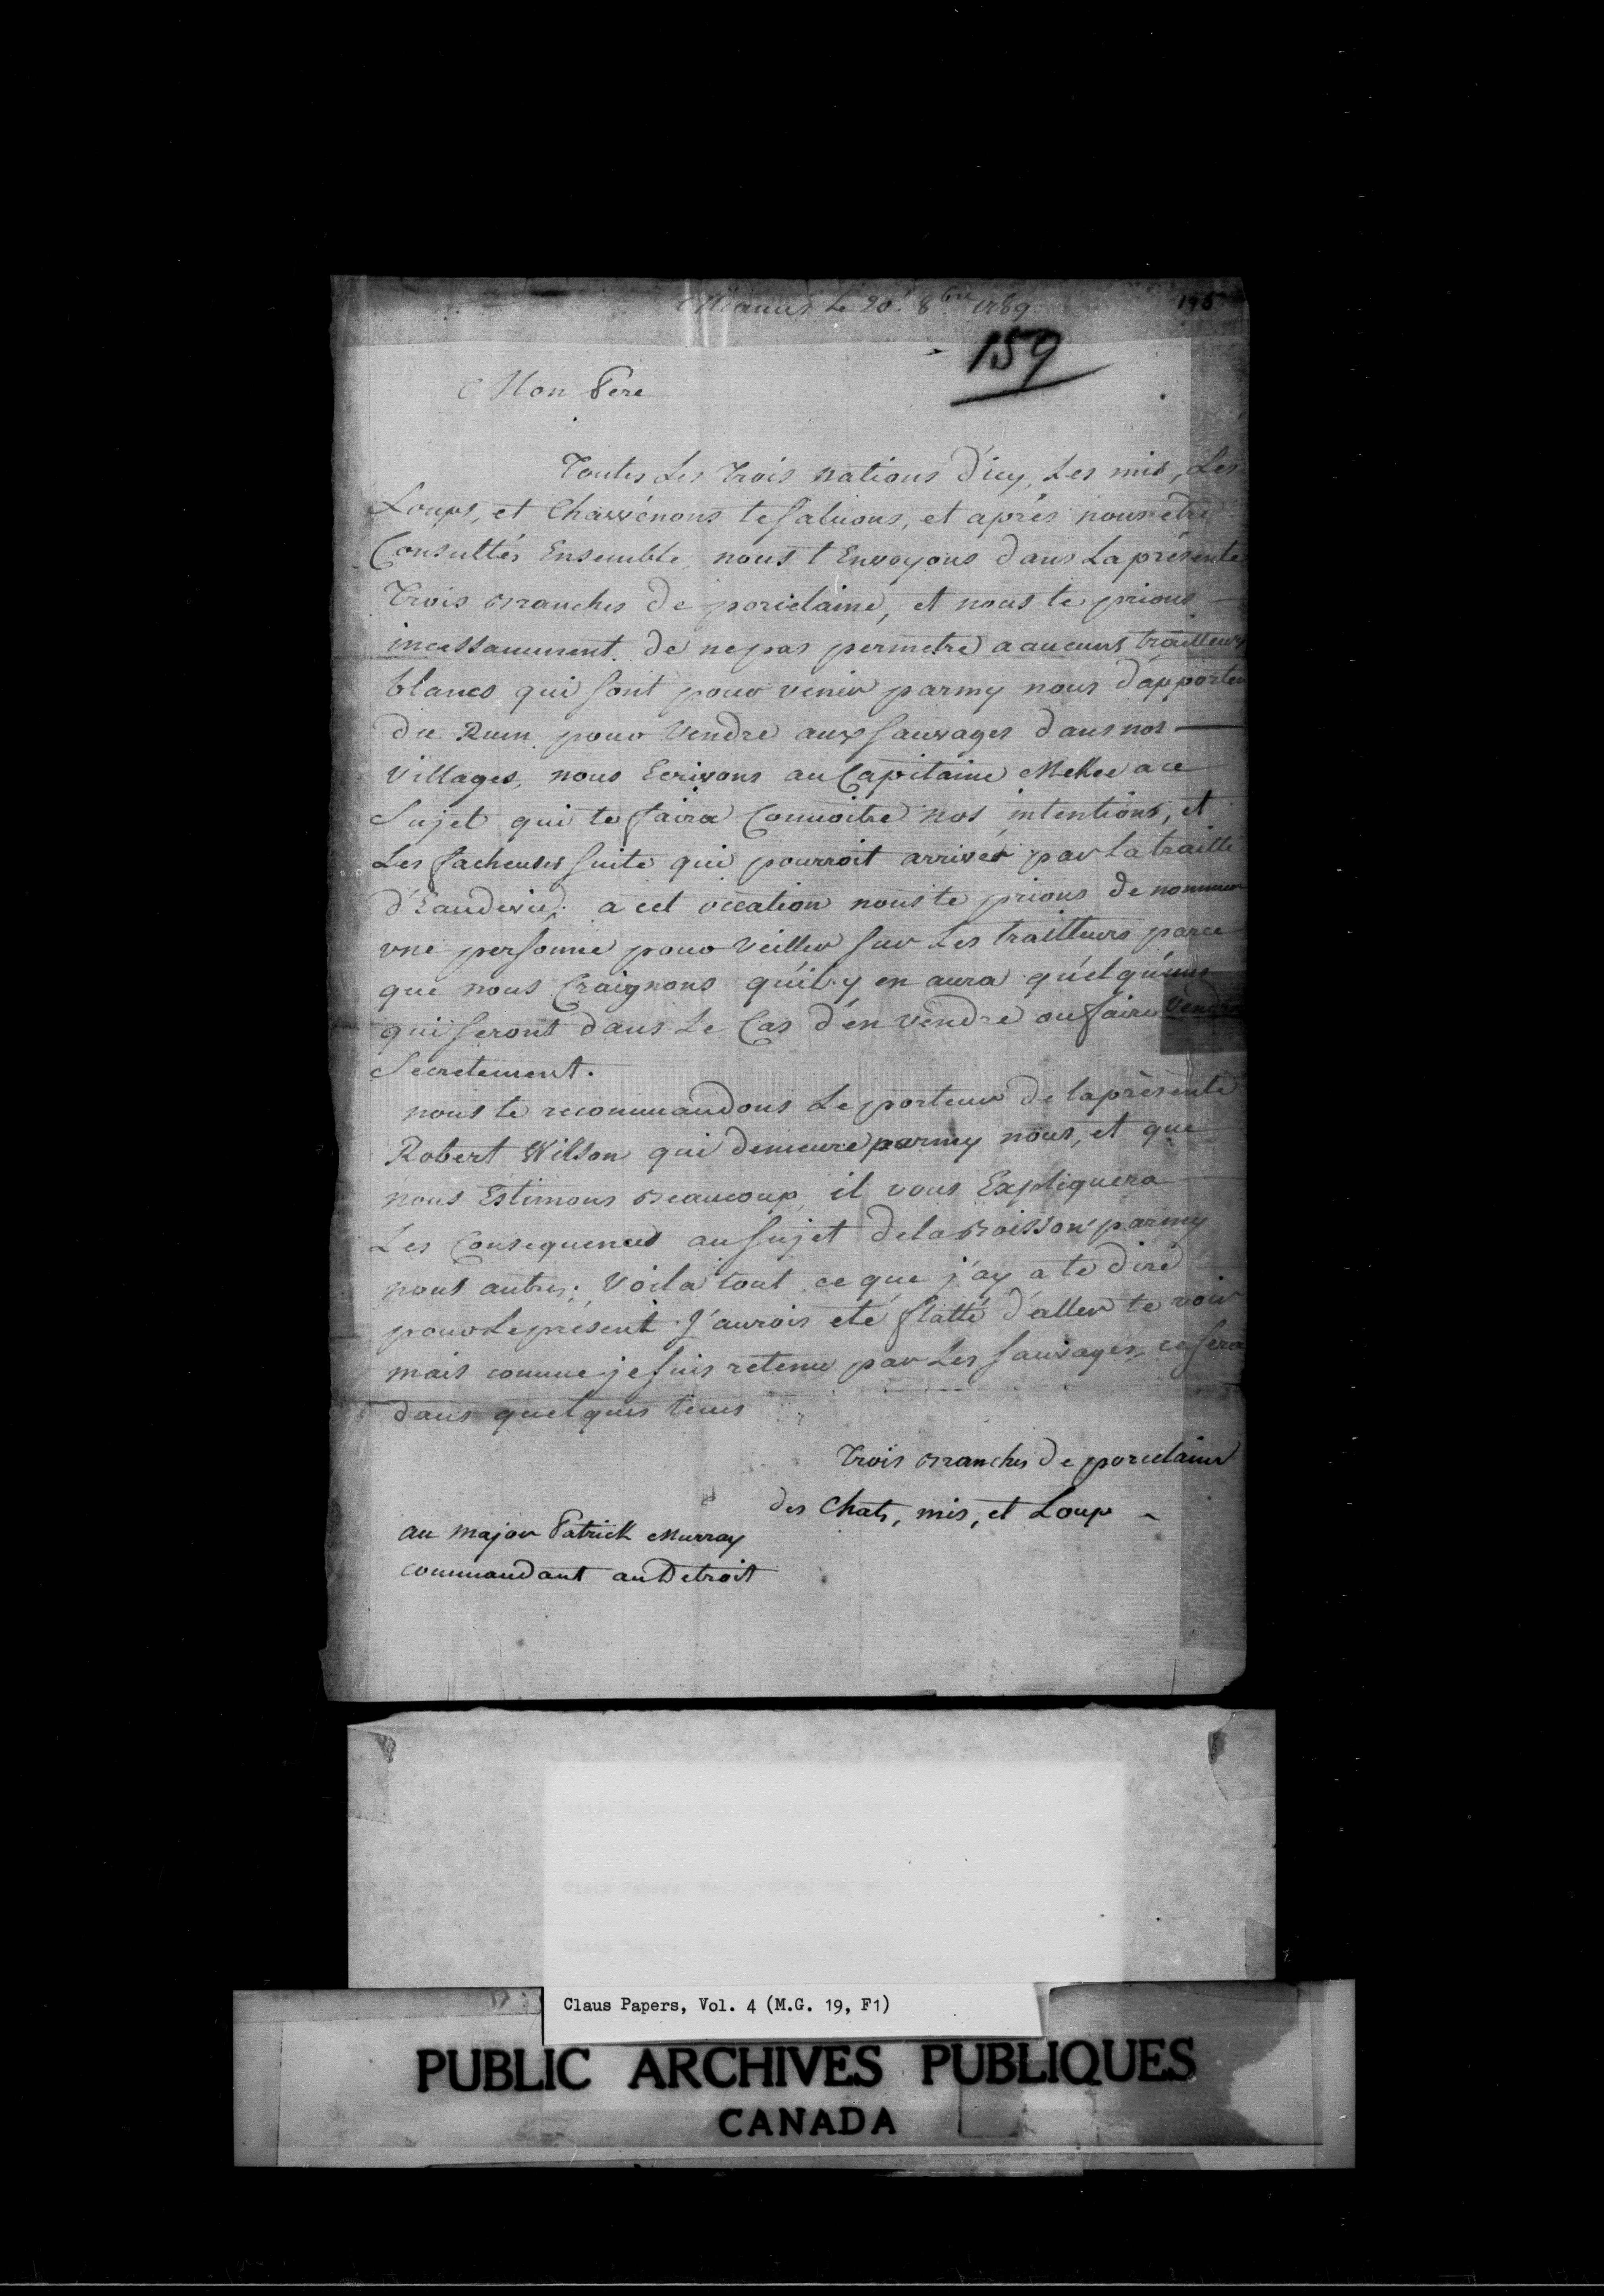 Miamis le 20. 8bre 1789
159
Mon Pere
Toutes Les Trois nations d'icy, Les mis, Les
Loups, et Chawénons te saluons, et aprés nous etre
Consultés Ensemble, nous t Envoyons dans La présente
Trois Branches de porcelaine, et nous te prions
incessamment de ne pas permetre a aucuns traitteurs
blancs qui sont pour venir parmy nous d'apporter
du Rum pour Vendre aux sauvages dans nos
Villages, nous Ecrivons au Capitaine McKee a ce
Sujet qui te faira Connoitre nos intentions, et
Les facheuses suite qui pourroit arriver par la traitte
d'Eaudevie; a cet occation nous te prions de nommer
une personne pour Veiller sur Les traitteurs parce
que nous Craignons qu'il y en aura quelqu'uns
qui seront dans Le Cas d'en vendre ou faire Vendre
Secretement.
nous te recommandons Le porteur de la présente
Robert Wilson qui demeure parmy nous, et que
nous Estimons Beaucoup, il vous Expliquera
Les Consequences au Sujet de la Boisson parmy
nous autres; Voila tout ce que j'ay a te dire
pour Le présent. J'aurois eté flatté d'aller te voir
mais comme je suis retenu par Les Sauvages, ce sera
dans quelques tems
Trois Branches de porcelaine
des Chats, mis, et Loup
au major Patrick Murray
commandant au Detroit
Claus Papers, Vol. 4 (M.G. 19, F1)
PUBLIC ARCHIVES PUBLIQUES
CANADA